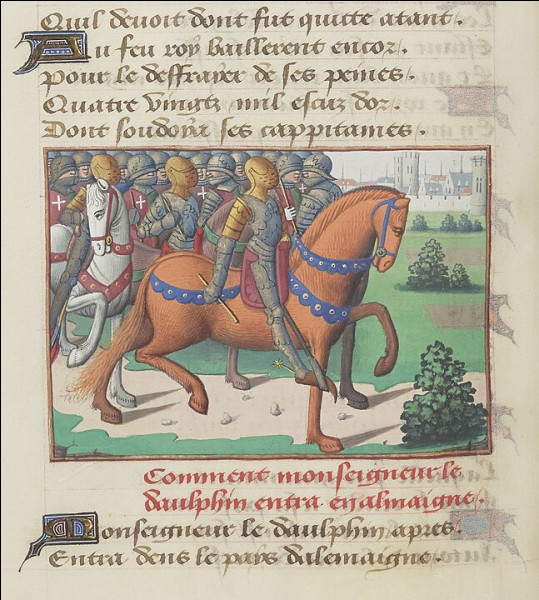 Quil devoit dont fut quitte atant.
Au feu roy baillerent encor.
Pour le deffrayer de ses peines.
Quatre vingtz mil escuz dor.
Dont souldoya ses cappitaines.
Comment monseigneur le
daulphin entra en almaigne.
Monseigneur le daulphin apres.
Entra dens le pays dalemaigne.